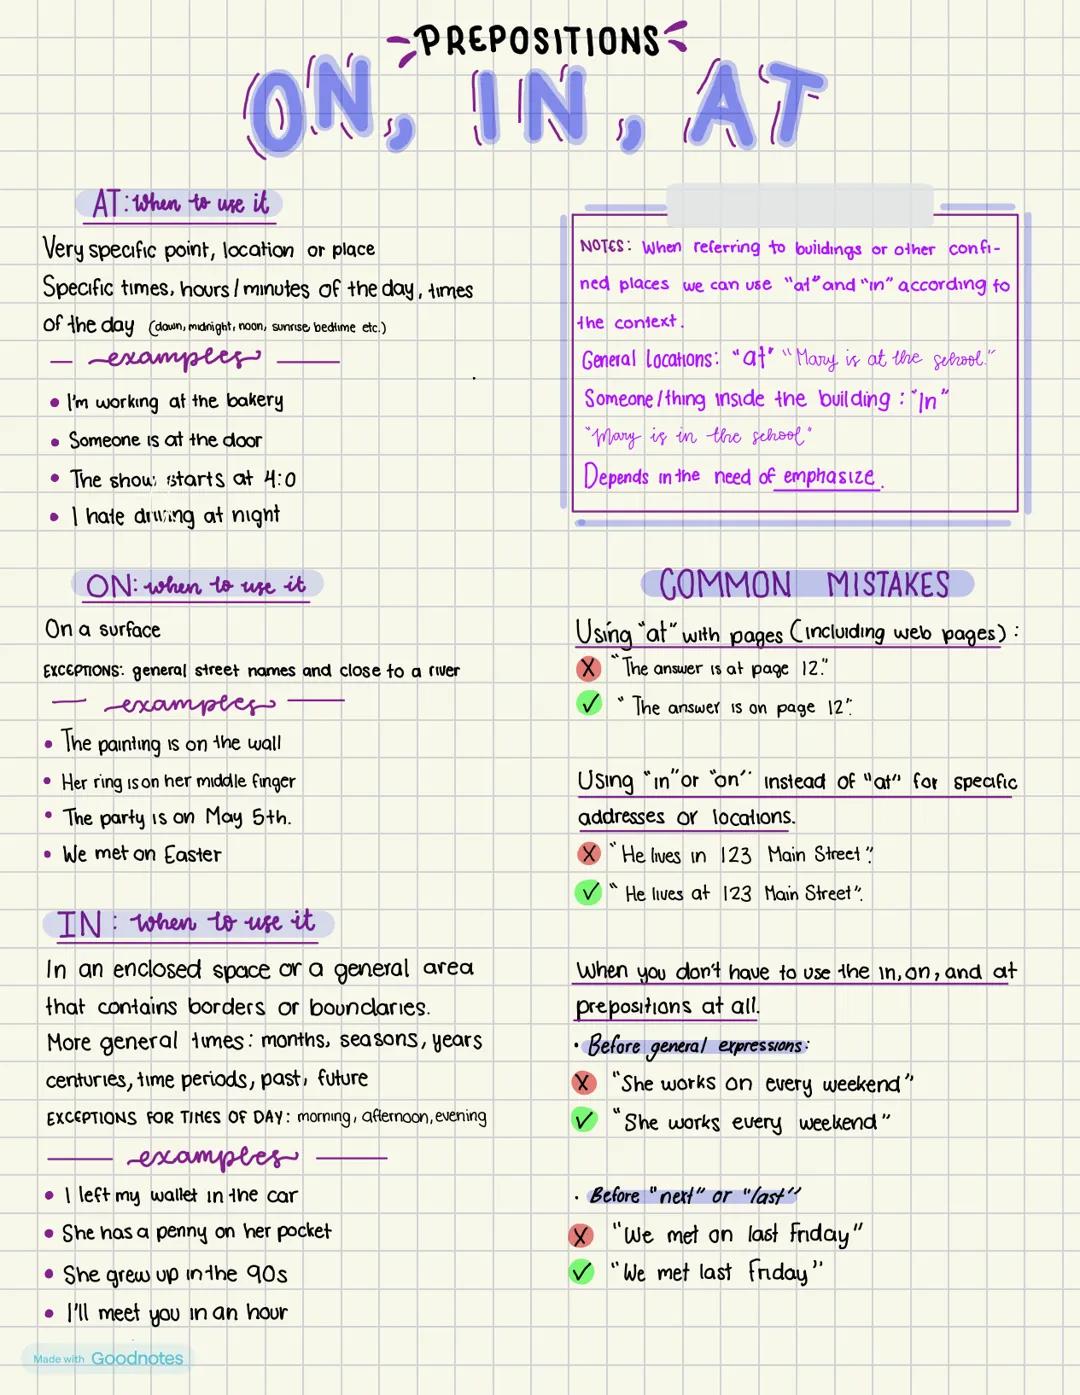 PREPOSITIONS
ON, IN, AT
AT: When to use it
Very specific point, location or place
Specific times, hours/minutes of the day, times
of the day (dawn, midnight, noon, sunrise bedtime etc.)
examples
I'm working at the bakery
Someone is at the door
The show starts at 4:0
I hate driving at night
NOTES: When referring to buildings or other confi-
ned places we can use "at" and "in" according to
the context.
General Locations: "at" "Mary is at the school."
Someone/thing inside the building: "In"
"Mary is in the school"
Depends in the need of emphasize.
ON: when to use it
On a surface
EXCEPTIONS: general street names and close to a river
examples
The painting is on the wall
Her ring is on her middle finger
The party is on May 5th.
We met on Easter
IN: when to use it
In an enclosed space or a general area
that contains borders or boundaries.
More general times: months, seasons, years
centuries, time periods, past, future
EXCEPTIONS FOR TIMES OF DAY: morning, afternoon, evening
examples
I left my wallet in the car
She has a penny on her pocket
She grew up in the 90s
I'll meet you in an hour
COMMON MISTAKES
Using "at" with pages (incluiding web pages):
X "The answer is at page 12."
✓ "The answer is on page 12".
Using "in" or "on" instead of "at" for specific
addresses or locations.
X "He lives in 123 Main Street".
✓ "He lives at 123 Main Street".
When you don't have to use the in, on, and at
prepositions at all.
· Before general expressions:
X "She works on every weekend"
✓ "She works every weekend"
· Before "next" or "last"
X "We met on last Friday"
✓ "We met last Friday"
Made with Goodnotes